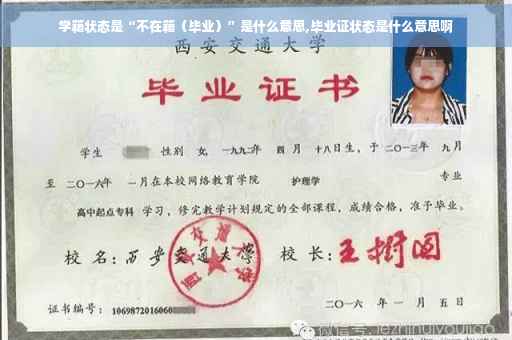 学籍状态是“不在籍（毕业）”是什么意思,毕业证状态是什么意思啊
西安交通大学
毕业证书
学生 性别 女, 一九九二年 四 月 十八日生，于 二〇一三年 九月
至 二〇一六年 一月在本校网络教育学院 护理学 专业
高中起点专科 学习，修完教学计划规定的全部课程，成绩合格，准予毕业。
校 名：西安交通大学 校 长：王树国
证书编号：1069872016060
二〇一六 年 一 月 五 日
微信号: jezhihuiyoujiao